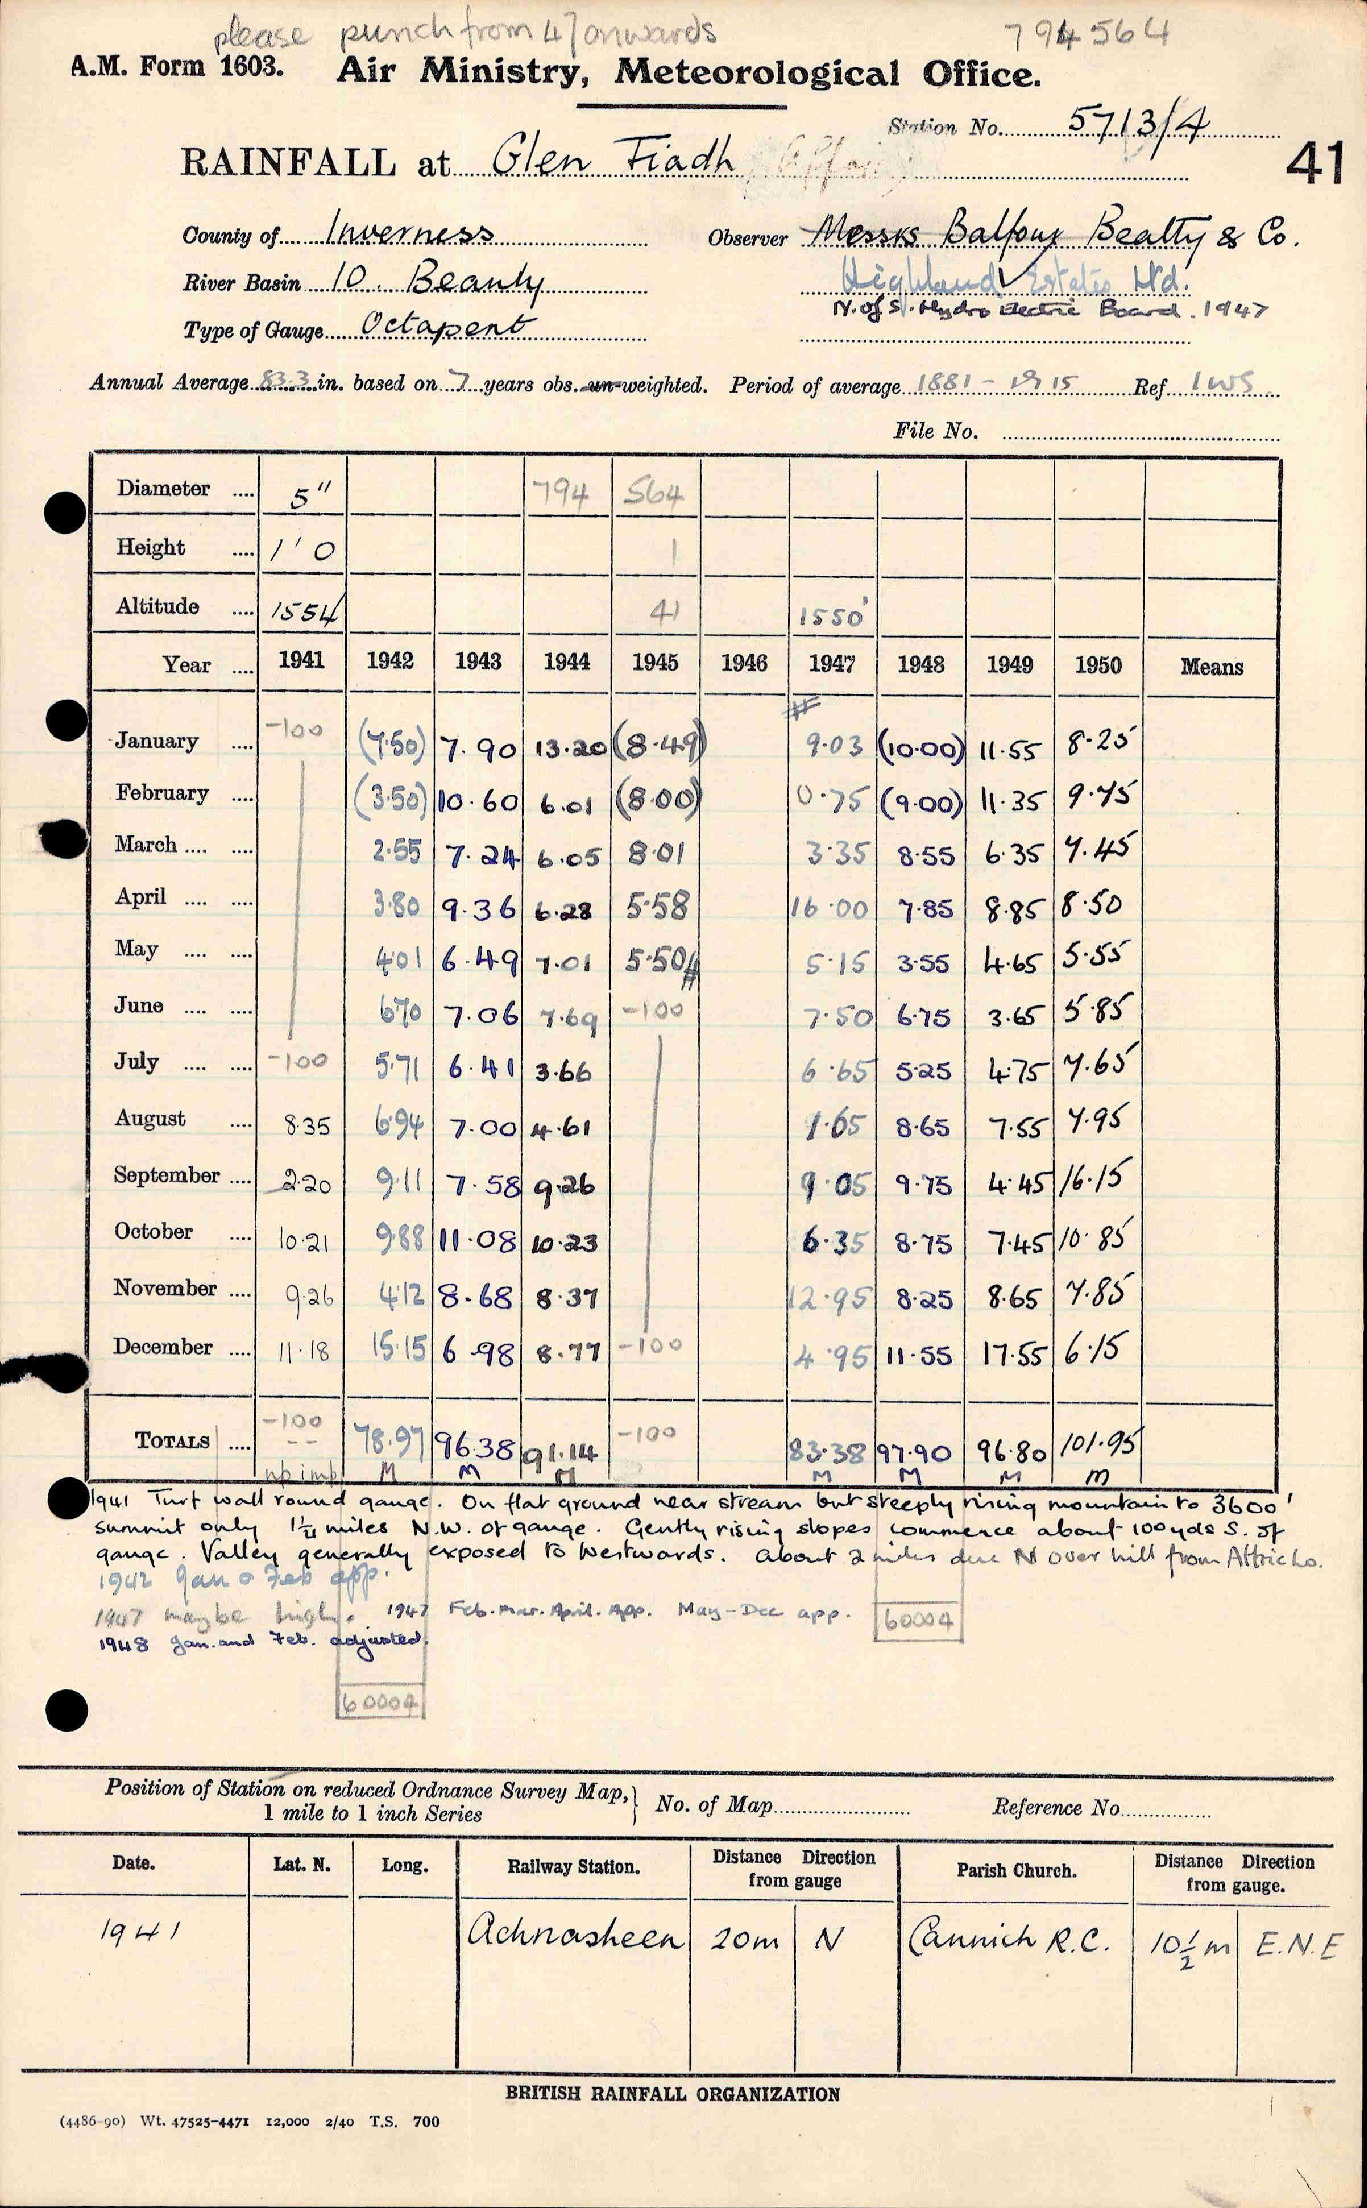 please punch from 47 onwards 794564
A.M. Form 1603. Air Ministry, Meteorological Office.
Station No. 5713/4
RAINFALL at Glen Fiadh 41
County of Inverness Observer Messrs Balfour Beatty & Co.
River Basin 10. Beauly Highland Estates Ltd.
N. of S. Hydro Electric Board. 1947
Type of Gauge Octapent
Annual Average 83.3 in. based on 7 years obs. un-weighted. Period of average 1881 - 1915 Ref. IWS
File No.
Diameter .... 5" 794 564
Height .... 1' 0 1
Altitude .... 1554 41 1550'
Year .... 1941 1942 1943 1944 1945 1946 1947 1948 1949 1950 Means
#
January .... -100 (7.50) 7.90 13.20 (8.49) 9.03 (10.00) 11.55 8.25
February .... (3.50) 10.60 6.01 (8.00) 0.75 (9.00) 11.35 9.75
March .... .... 2.55 7.24 6.05 8.01 3.35 8.55 6.35 7.45
April .... .... 3.80 9.36 6.28 5.58 16.00 7.85 8.85 8.50
May .... .... 4.01 6.49 7.01 5.50# 5.15 3.55 4.65 5.55
June .... .... 6.70 7.06 7.69 -100 7.50 6.75 3.65 5.85
July .... .... -100 5.71 6.41 3.66 6.65 5.25 4.75 7.65
August .... 8.35 6.94 7.00 4.61 1.65 8.65 7.55 7.95
September .... 2.20 9.11 7.58 9.26 9.05 9.75 4.45 16.15
October .... 10.21 9.88 11.08 10.23 6.35 8.75 7.45 10.85
November .... 9.26 4.12 8.68 8.37 12.95 8.25 8.65 7.85
December .... 11.18 15.15 6.98 8.77 -100 4.95 11.55 17.55 6.15
TOTALS .... -100 -- 78.97 96.38 91.14 -100 83.38 97.90 96.80 101.95
np imp M M M M M M m
1941 Turf wall round gauge. On flat ground near stream but steeply rising mountain to 3600'
summit only 1½ miles N.W. of gauge. Gently rising slopes commence about 100yds S. of
gauge. Valley generally exposed to Westwards. About 2 miles due N over hill from Affric Lo.
1942 Jan & Feb app.
1947 maybe high. 1947 Feb. Mar. April. App. May-Dec app. 60004
1948 Jan. and Feb. adjusted.
60004
Position of Station on reduced Ordnance Survey Map, 1 mile to 1 inch Series } No. of Map Reference No.
Date. Lat. N. Long. Railway Station. Distance Direction from gauge Parish Church. Distance Direction from gauge.
1941 Achnasheen 20m N Cannich R.C. 10½m E.N.E
BRITISH RAINFALL ORGANIZATION
(4486-90) Wt. 47525-4471 12,000 2/40 T.S. 700